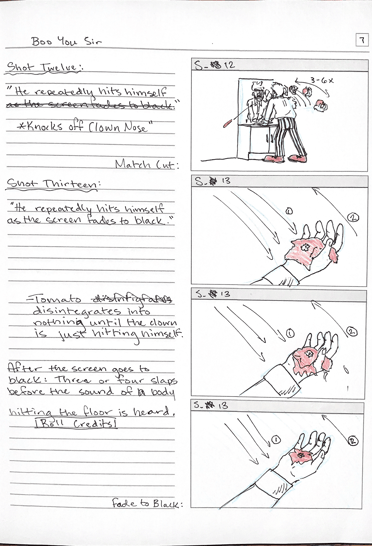 Boo You Sir
7
Shot Twelve:
"He repeatedly hits himself
as the screen fades to black."
*Knocks off Clown Nose"
Match Cut:
Shot Thirteen:
"He repeatedly hits himself
as the screen fades to black."
-Tomato
disintegrates into
nothing until the clown
is just hitting himself.
After the screen goes to
black: Three or four slaps
before the sound of body
hitting the floor is heard.
[Roll Credits]
Fade to Black:
S- 12
3-6x
S- 13
1
2
S- 13
1
2
S- 13
1
2